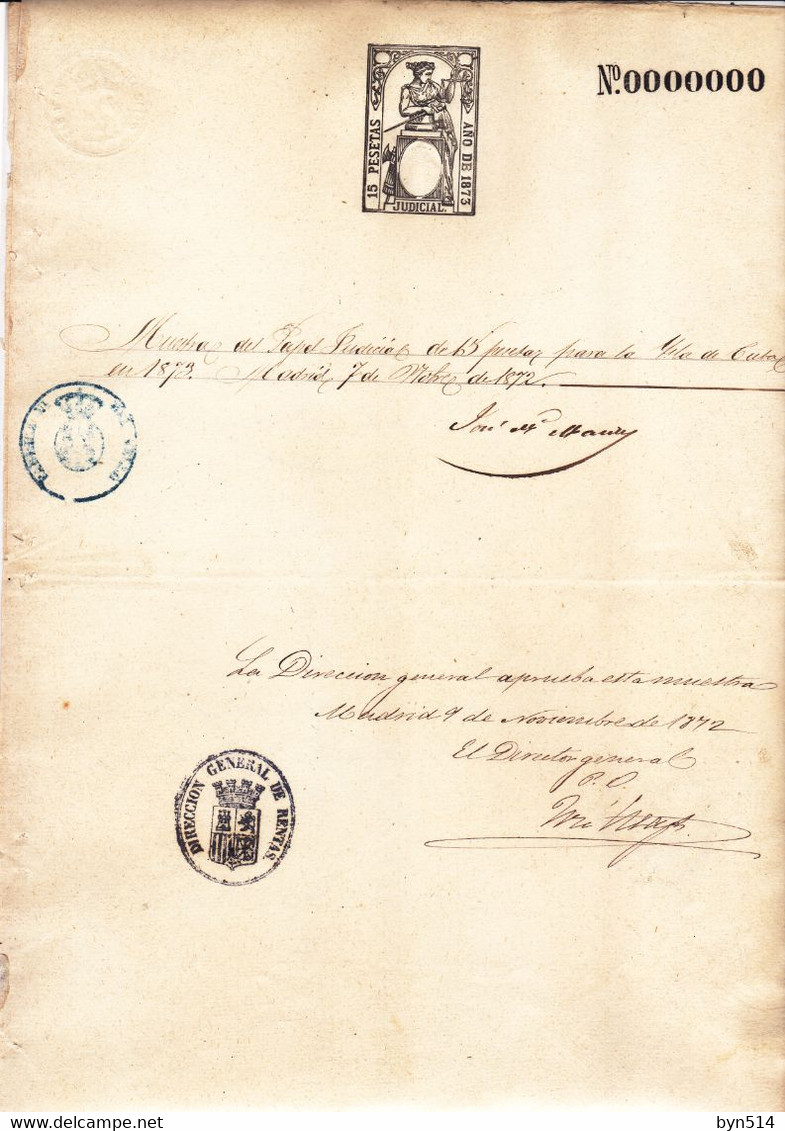 Nº.0000000
15 PESETAS
AÑO DE 1873
JUDICIAL.
Muestra del Papel Judicial de 15 pesetas para la Isla de Cuba
en 1873. Madrid 7 de Nobre de 1872.
José Mª
La Direccion general aprueba esta muestra
Madrid 9 de Noviembre de 1872
El Director general
P. O.
DIRECCION GENERAL DE RENTAS
byn514